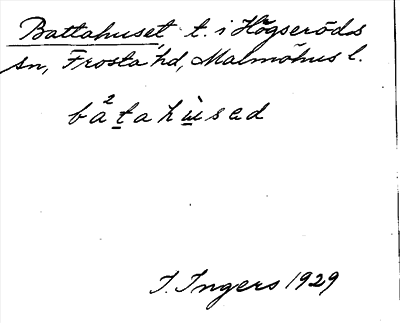 Battahuset, t. i Högseröds
sn, Frosta hd, Malmöhus l.
bá²ṯahu̱̇sed
I. Ingers 1929